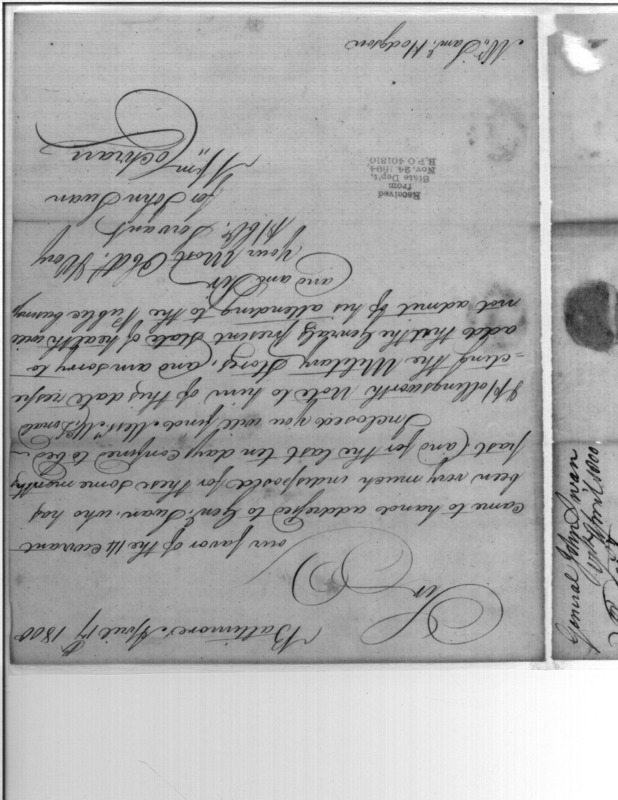 Baltimore, April 17, 1800
Sir
our favor of the 14 Courrant
came to hand addressed to Gen.l Swan, who has
been very much indisposed for these some months
past (and for the last ten days confined to bed
Inclosed you will find Mess.rs
& Hollingsworth Note to him of this date respe
=cting the Military Stores, (and am sorry to
add that the Generals present state of health will
not admit of his attending to the Public business
and am Sir
Your Most Obdt. & Very
Hble. Servant
for John Swan
Wm Cochran
Mr. Saml. Hodgson
Received
from
State Dep't.
Nov. 24, 1894
R.P.O. 401810
General John Swan
April 1800